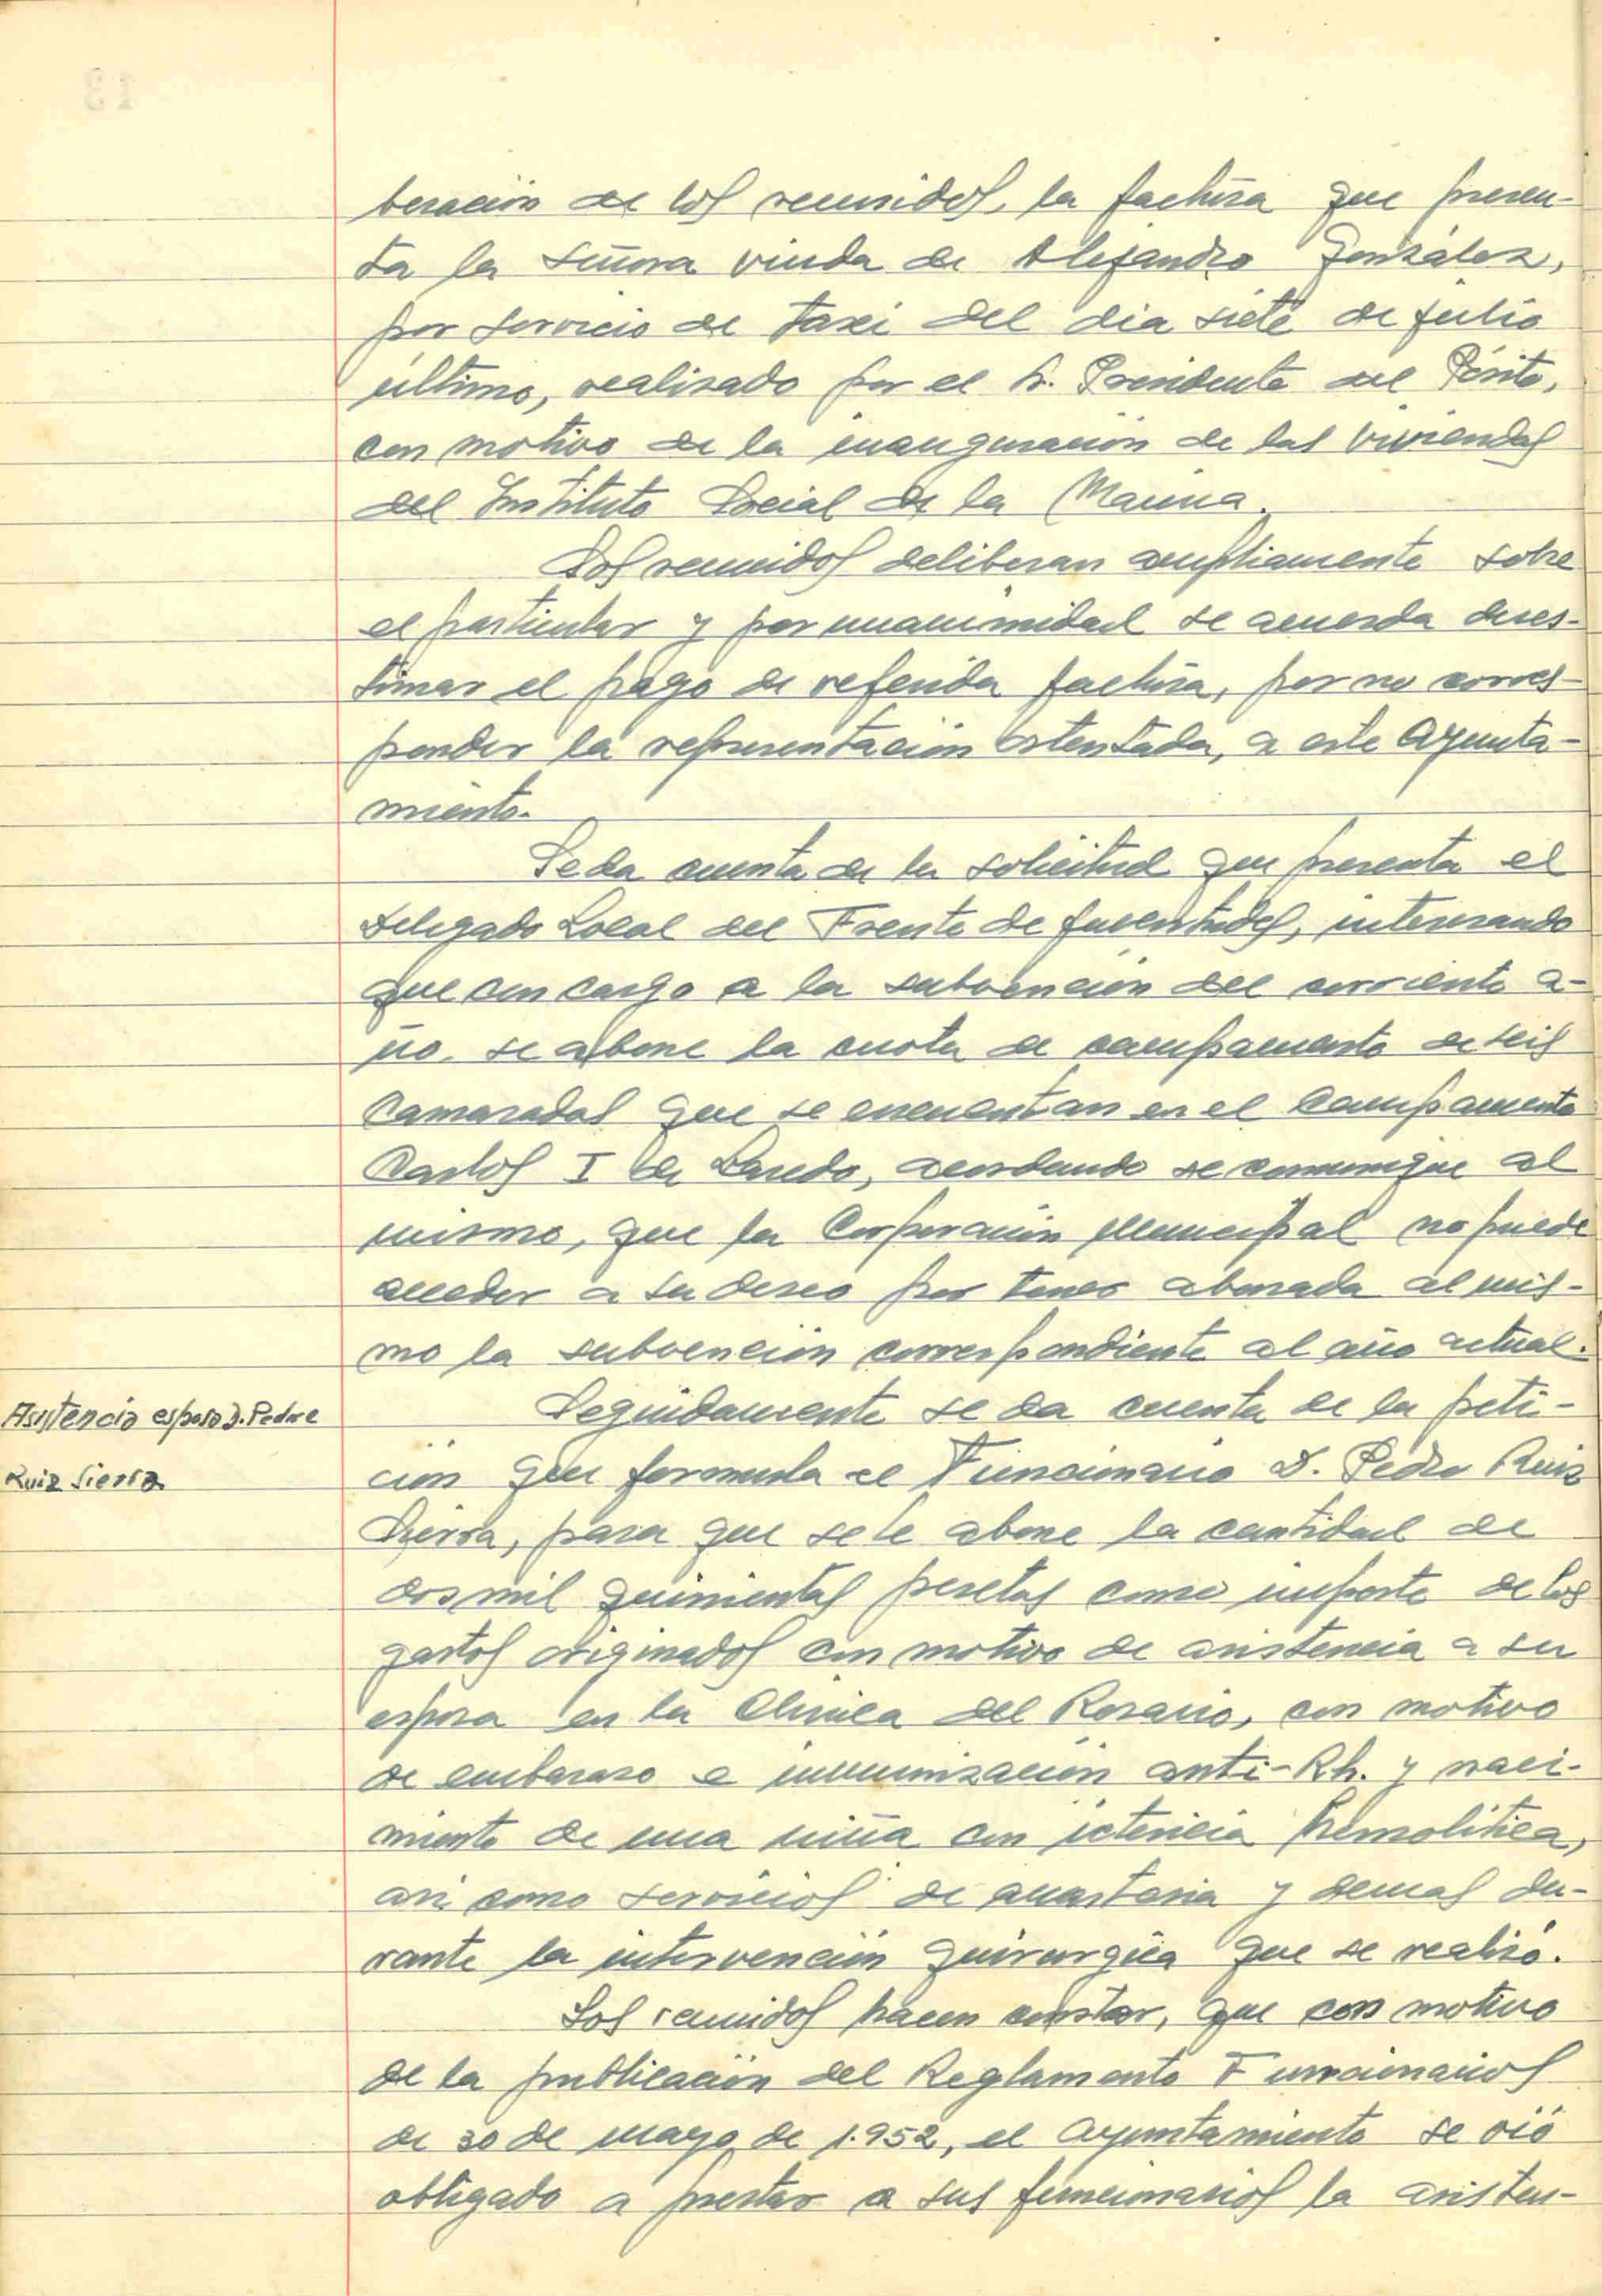 beración de los reunidos, la factura que presen-
ta la señora viuda de Alejandro González,
por servicio de taxi del dia siete de julio
último, realizado por el Sr. Presidente del Pósito,
con motivo de la inauguración de las viviendas
del Instituto Social de la Marina.
Los reunidos deliberan ampliamente sobre
el particular y por unanimidad se acuerda deses-
timar el pago de referida factura, por no corres-
ponder la representación ostentada, a este Ayunta-
miento.
Se da cuenta de la solicitud que presenta el
Delegado Local del Frente de Juventudes, interesando
que con cargo a la subvención del corriente a-
ño, se abone la cuota de campamento de seis
Camaradas que se encuentan en el Campamento
Carlos I de Laredo, acordando se comunique al
mismo, que la Corporación Municipal no puede
acceder a su deseo por tener abonada al mis-
mo la subvención correspondiente al año actual.
Asistencia esposa D. Pedro
Ruiz Sierra
Seguidamente se da cuenta de la peti-
ción que formula el Funcionario D. Pedro Ruiz
Sierra, para que se le abone la cantidad de
dos mil quinientas pesetas como importe de los
gastos originados con motivo de asistencia a su
esposa en la Clinica del Rosario, con motivo
de embarazo e inmunización anti-Rh. y naci-
miento de una niña con ictericia hemolítica,
asi como servicios de anastesia y demas du-
rante la intervención quirurgica que se realizó.
Los reunidos hacen constar, que con motivo
de la publicación del Reglamento Funcionarios
de 30 de mayo de 1.952, el Ayuntamiento se vió
obligado a prestar a sus funcionarios la asisten-